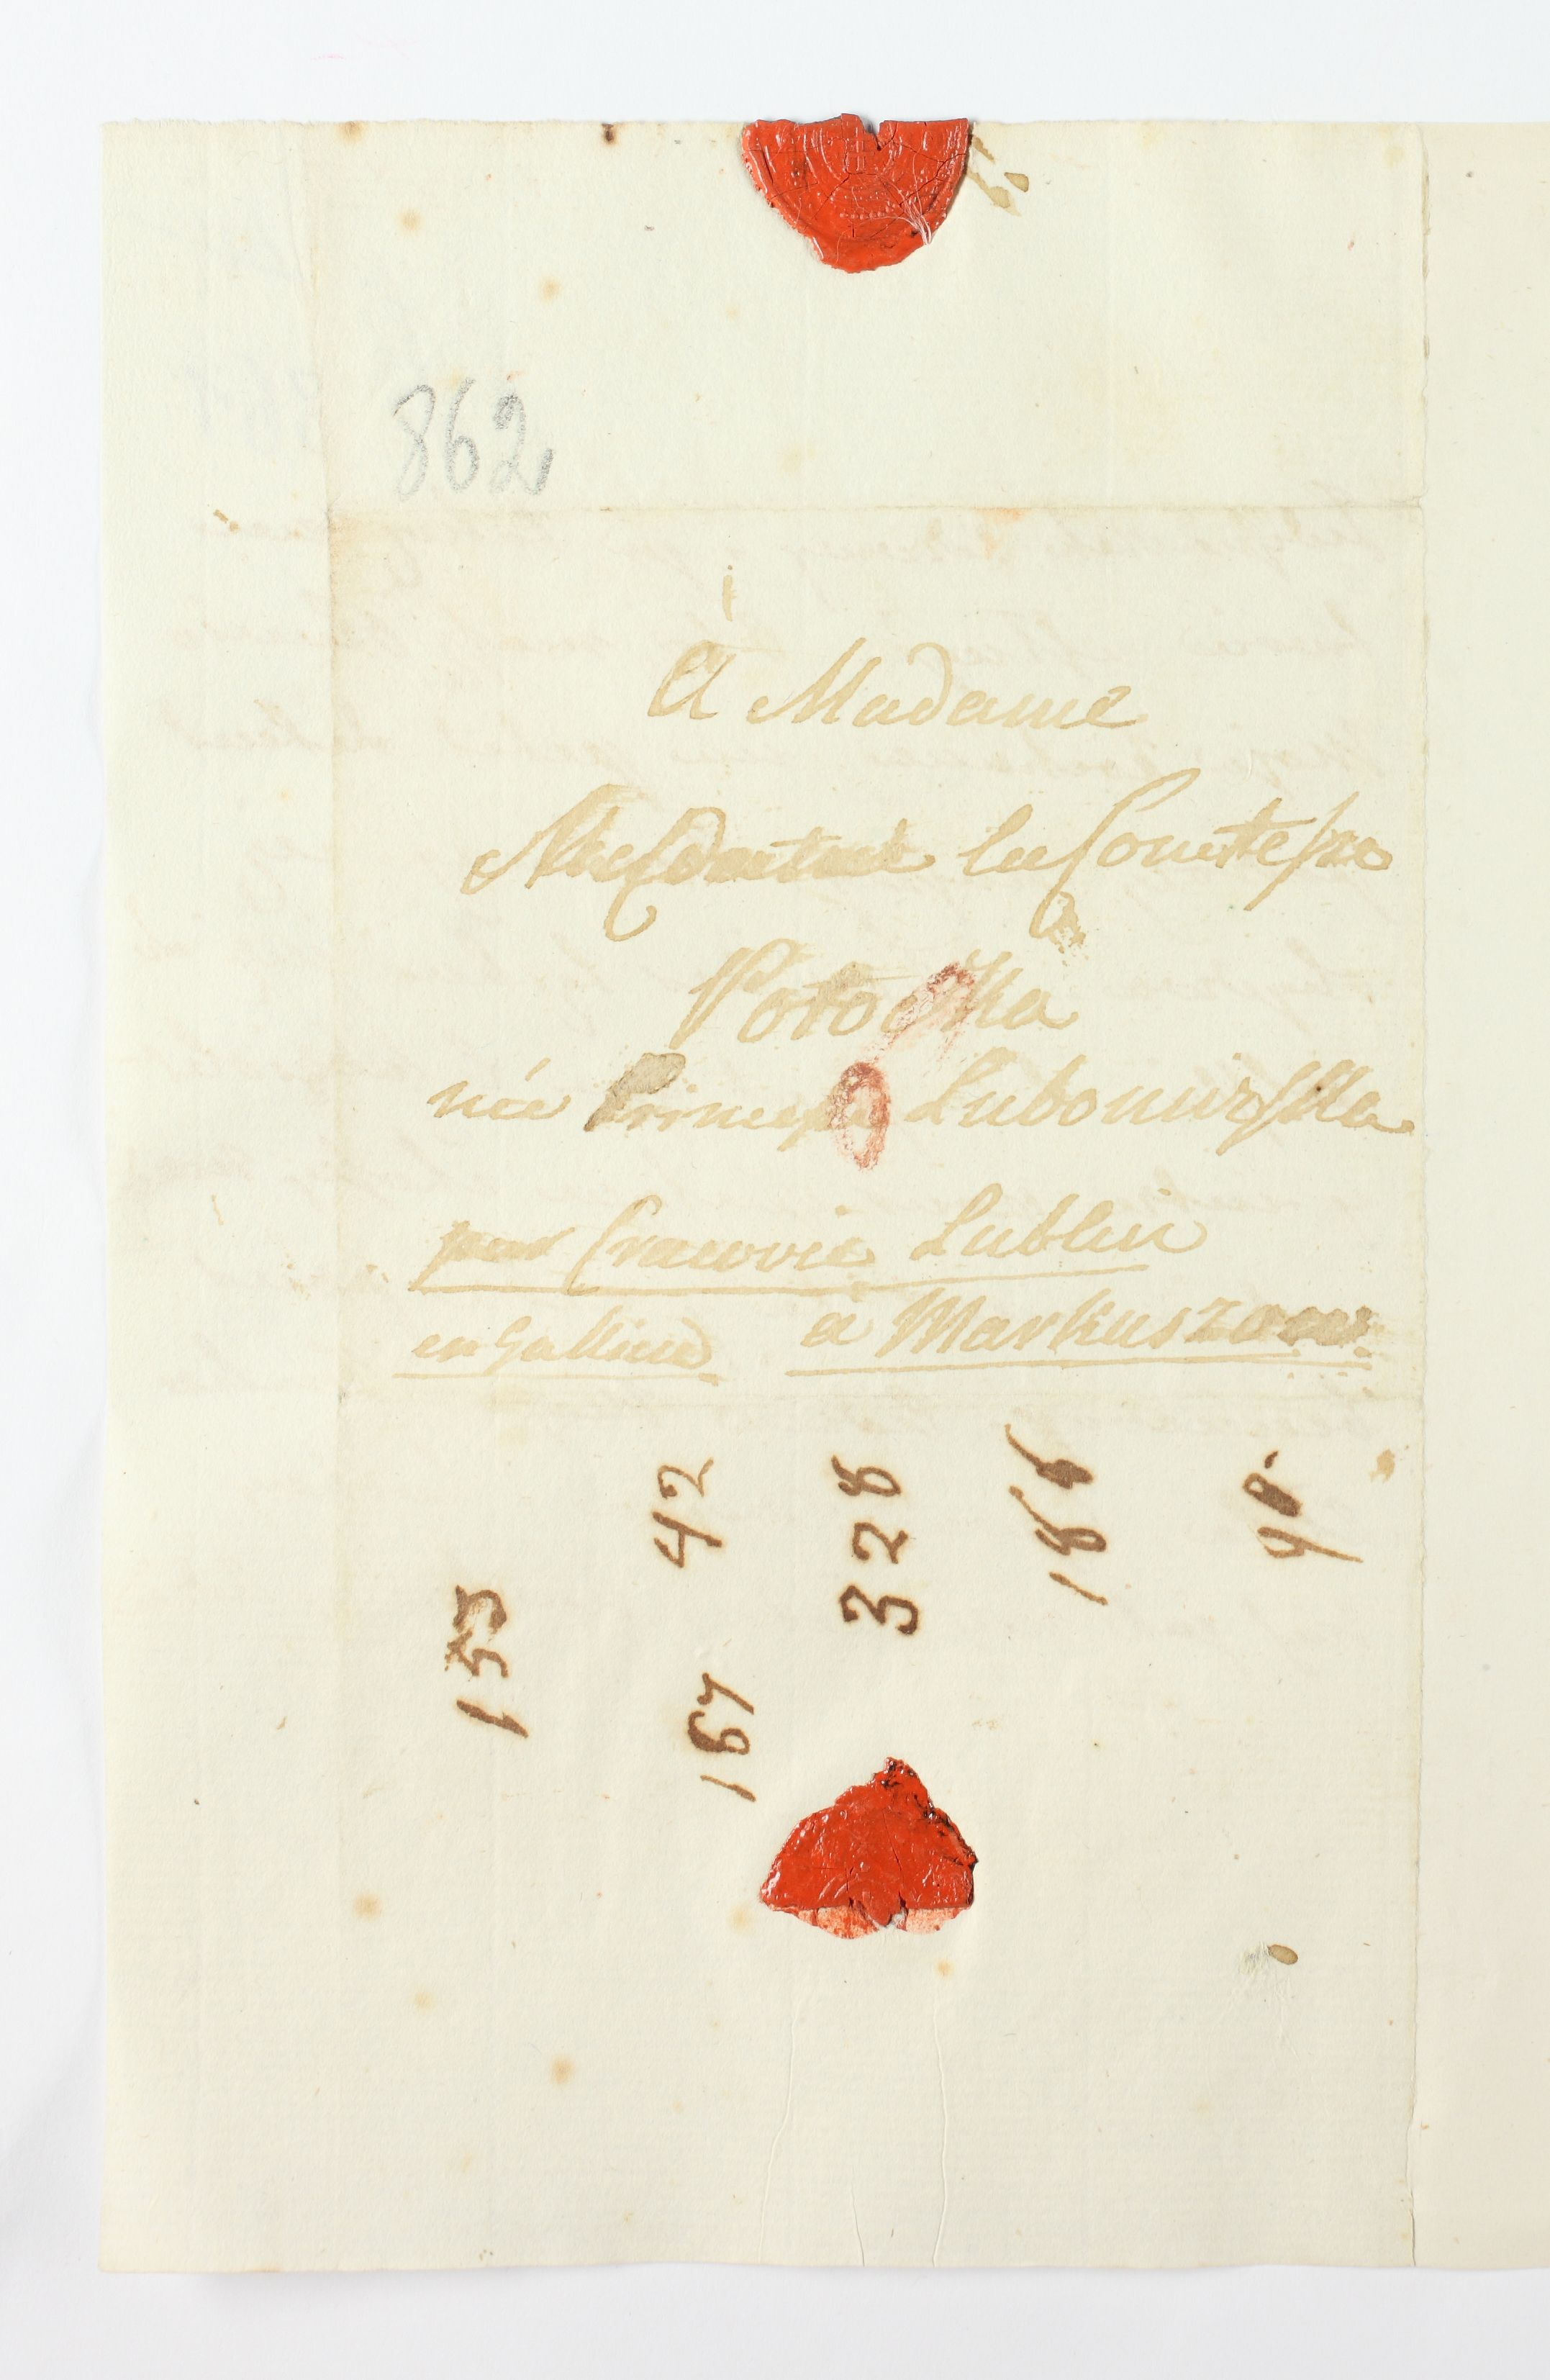 862
à Madame
Madame la Comtesse
Potocka
née Princesse Lubomirska
par Cracovie Lublin
en Gallicie à Markuszow.
153
42
167
328
186